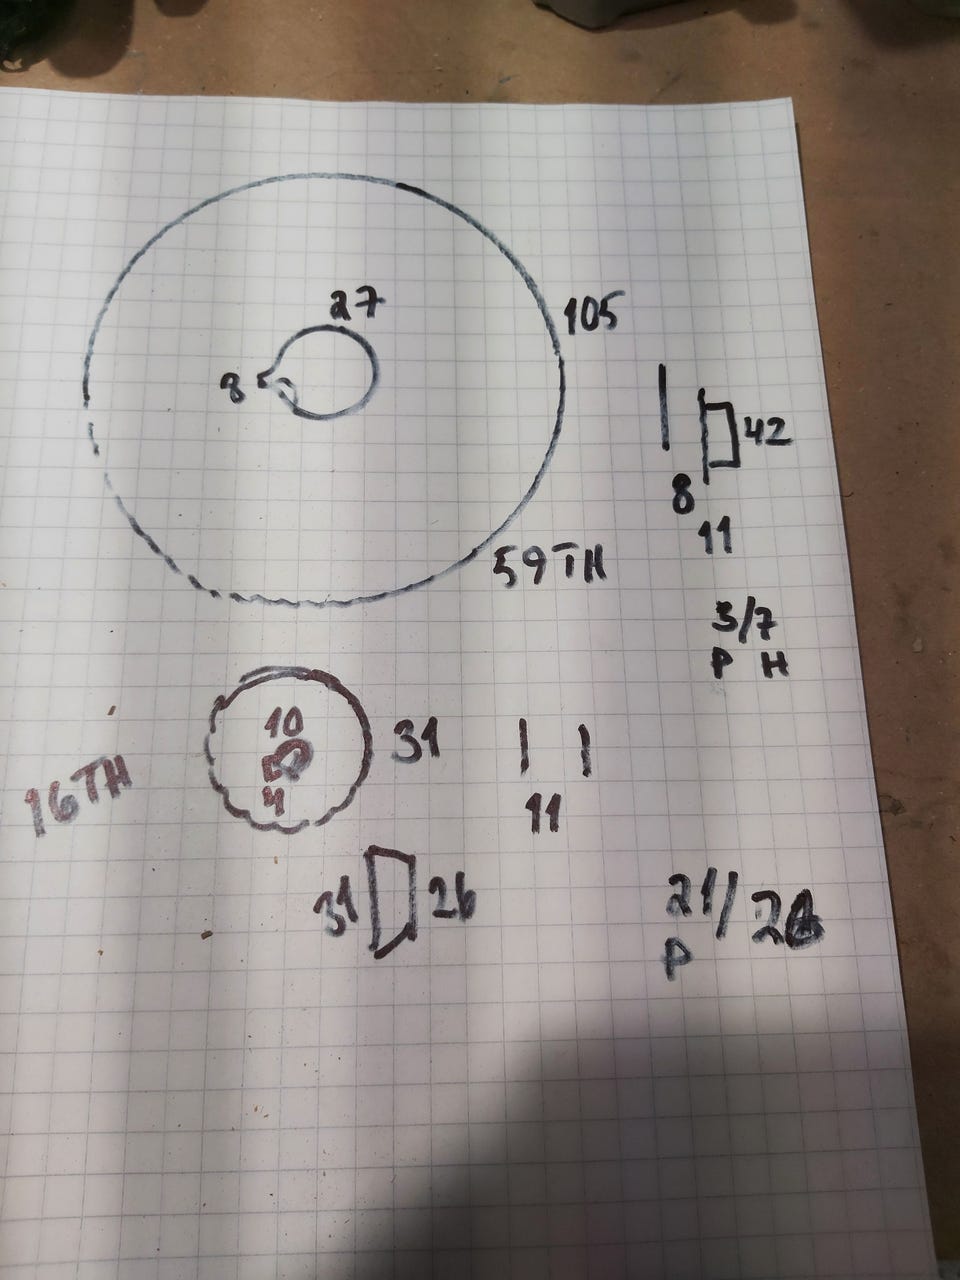 27
105
8
42
8
11
59TH
3/7
P H
10
31
4
16TH
11
31
26
21/
P